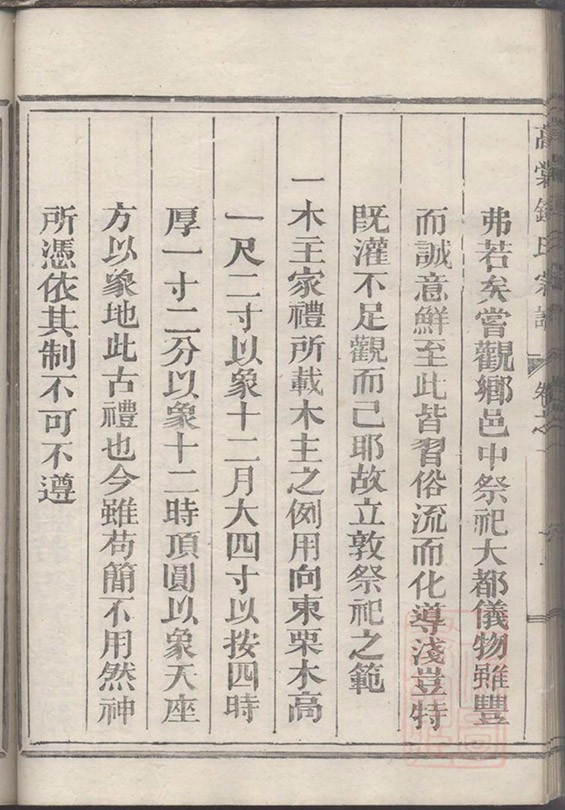 弗若矣嘗觀鄉邑中祭祀大都儀物雖豐
而誠意鮮至此皆習俗流而化導淺豈特
既灌不足觀而已耶故立敦祭祀之範
一木主家禮所載木主之例用向東栗木高
一尺二寸以象十二月大四寸以按四時
厚一寸二分以象十二時頂圓以象天座
方以象地此古禮也今雖苟簡不用然神
所憑依其制不可不遵